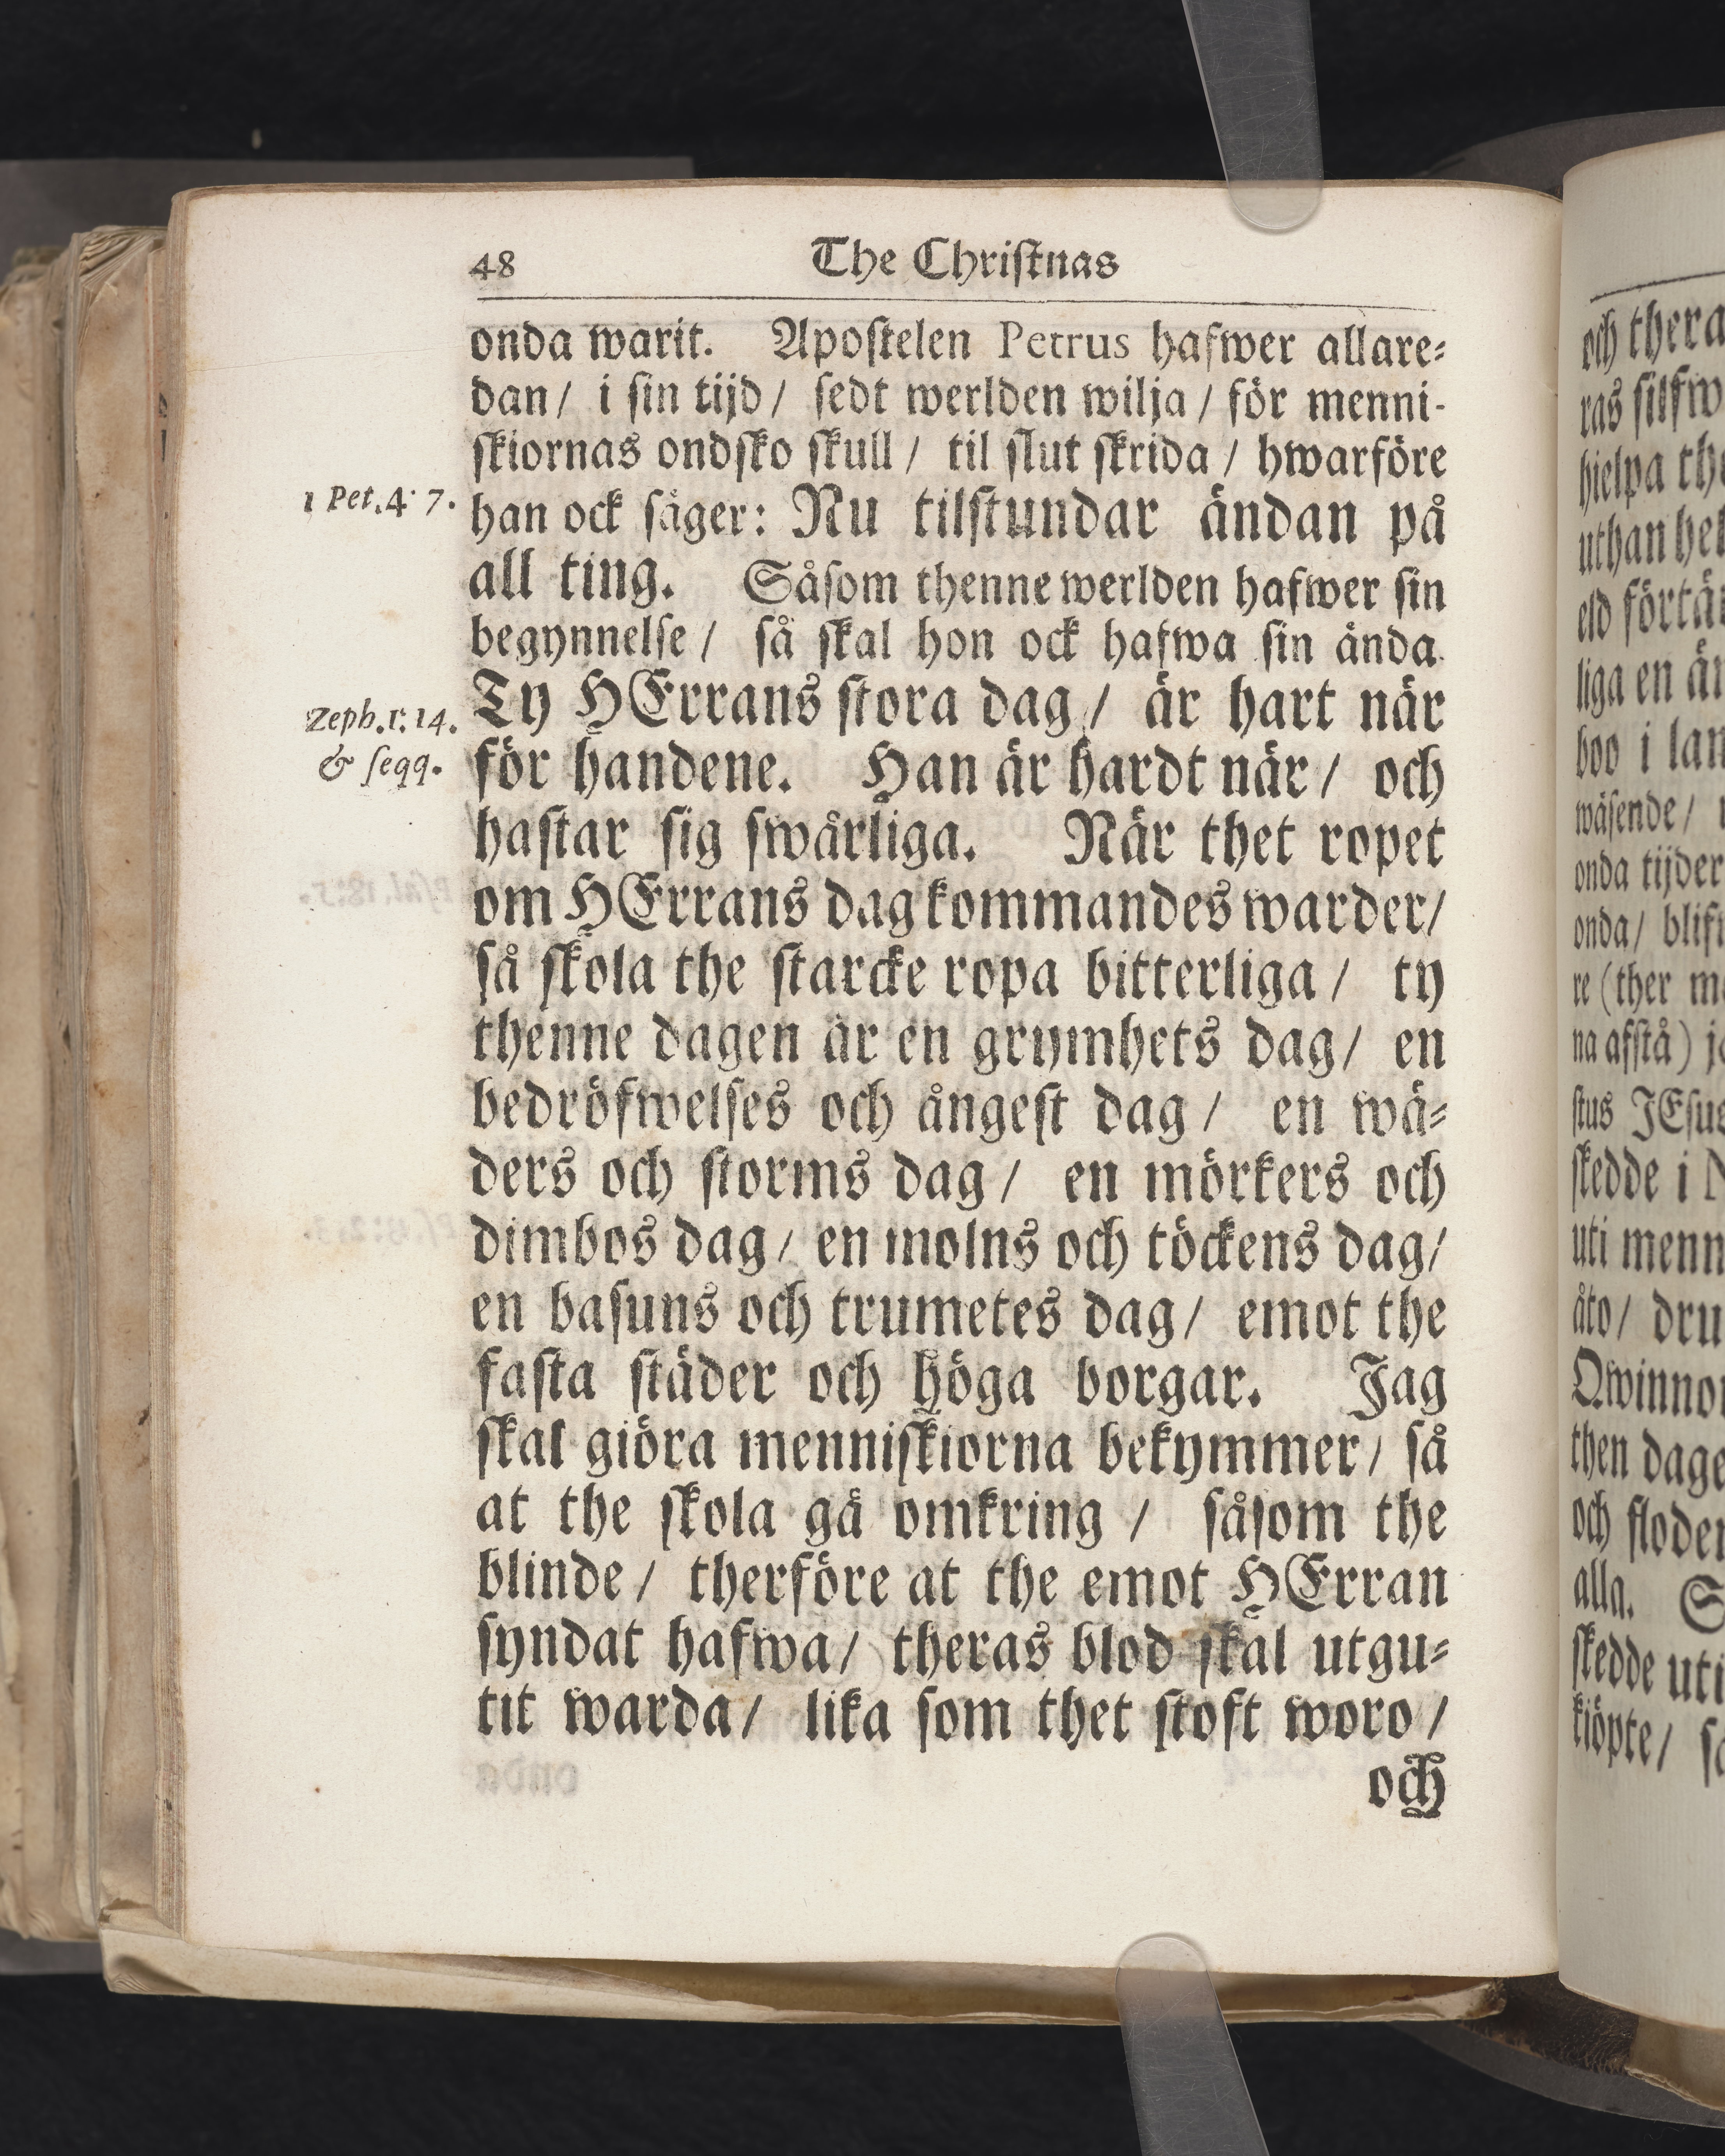 48 The Christnas
onda warit. Apostelen Petrus hafwer allare-
dan/ i sin tijd/ sedt werlden wilja/ för menni-
skiornas ondsko skull/ til slut skrida/ hwarföre
1 Pet. 4: 7. han ock säger: Nu tilstundar ändan på
all ting. Såsom thenne werlden hafwer sin
begynnelse/ så skal hon ock hafwa sin ända.
Zeph. 1: 14. Ty HErrans stora dag/ är hart när
& seqq. för handene. Han är hardt när/ och
hastar sig swårliga. När thet ropet
om HErrans dag kommandes warder/
så skola the starcke ropa bitterliga/ ty
thenne dagen är en grymhets dag/ en
bedröfwelses och ångest dag/ en wä-
ders och storms dag/ en mörkers och
dimbos dag/ en molns och töckens dag/
en basuns och trumetes dag/ emot the
fasta städer och höga borgar. Jag
skal giöra menniskiorna bekymmer/ så
at the skola gå omkring/ såsom the
blinde/ therföre at the emot HErran
syndat hafwa/ theras blod skal utgu-
tit warda/ lika som thet stoft woro/
och
och thera
ras silfw
hielpa th
uthan hel
eld förtä
liga en än
boo i lan
wäsende/
onda tijder
onda/ blif
re (ther m
na afstå) j
stus JEsus
skedde i
uti menn
åto/ dru
Qwinno
then dage
och floden
alla. S
skedde uti
kiöpte/ s